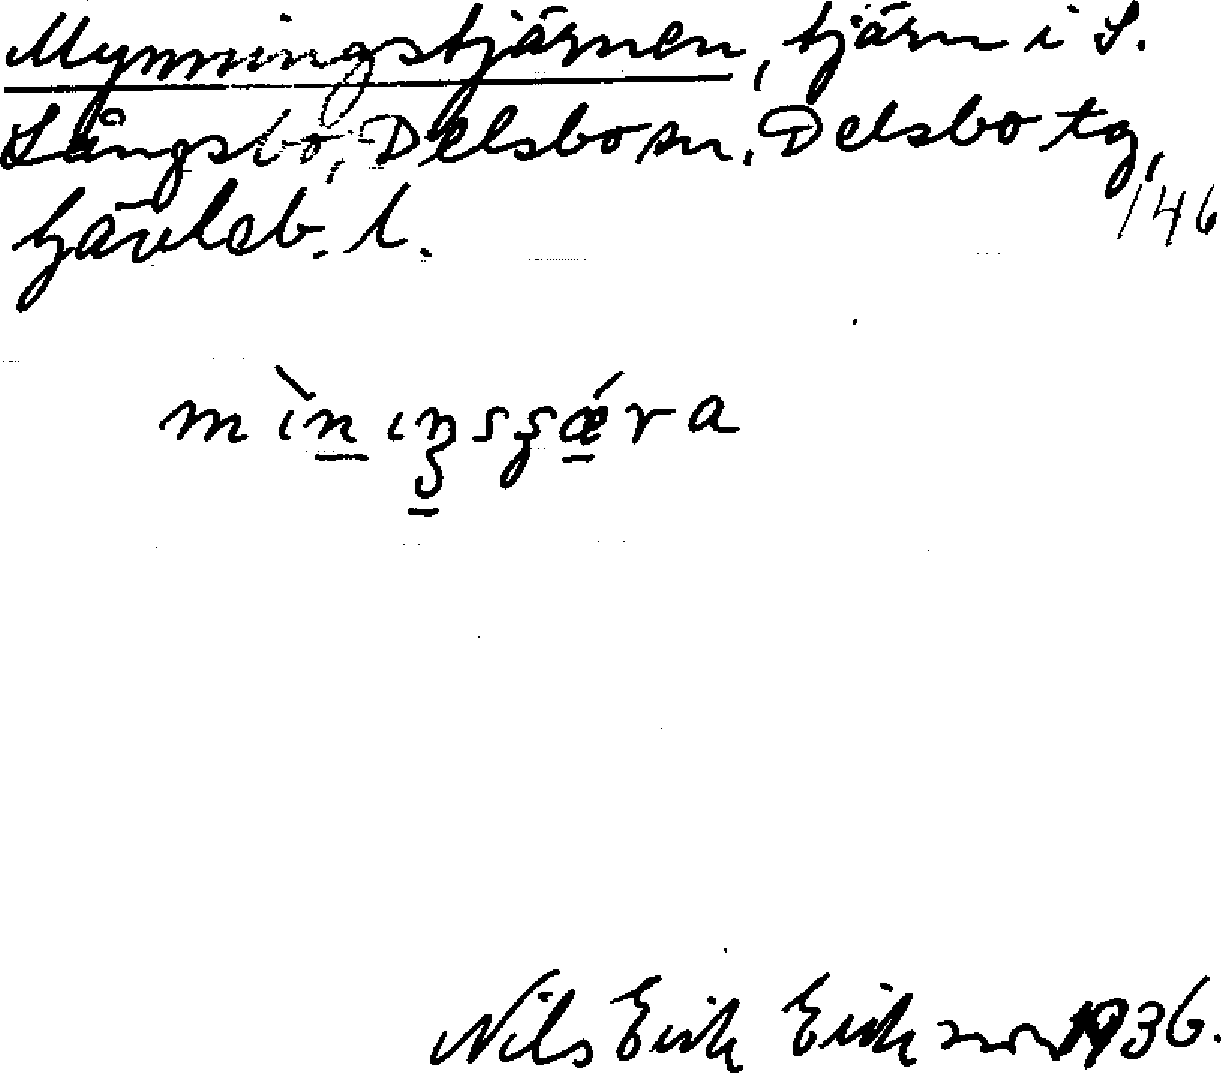 Mynningstjärnen, tjärn i S.
Långsbo, Delsbo sn. Delsbo tg,
Gävleb. l.
/46
Nils Erik Erikson 1936.